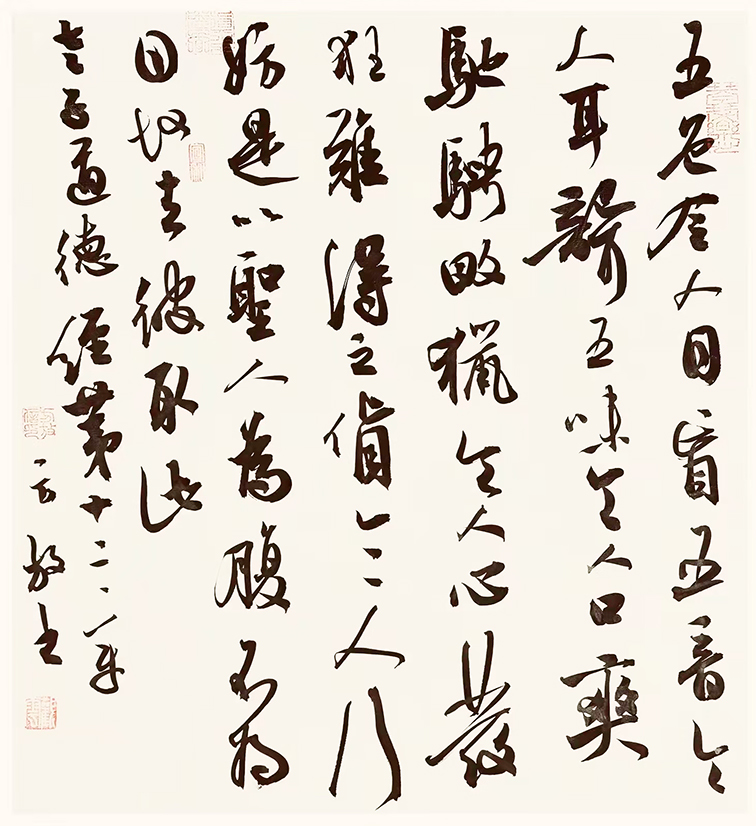 五色令人目盲五音令
人耳聾五味令人口爽
馳騁畋獵令人心發
狂難得之貨令人行
妨是以聖人為腹不為
目故去彼取此
老子道德經第十二章
敬书